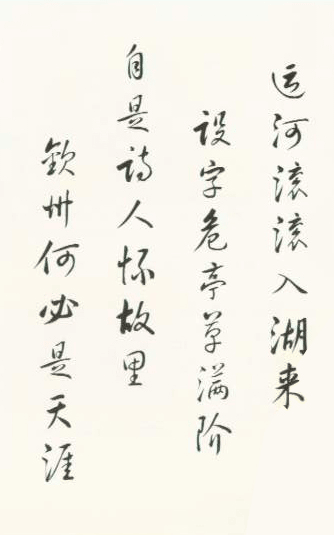 运河滚滚入湖来
设字危亭草满阶
自是诗人怀故里
钦州何必是天涯